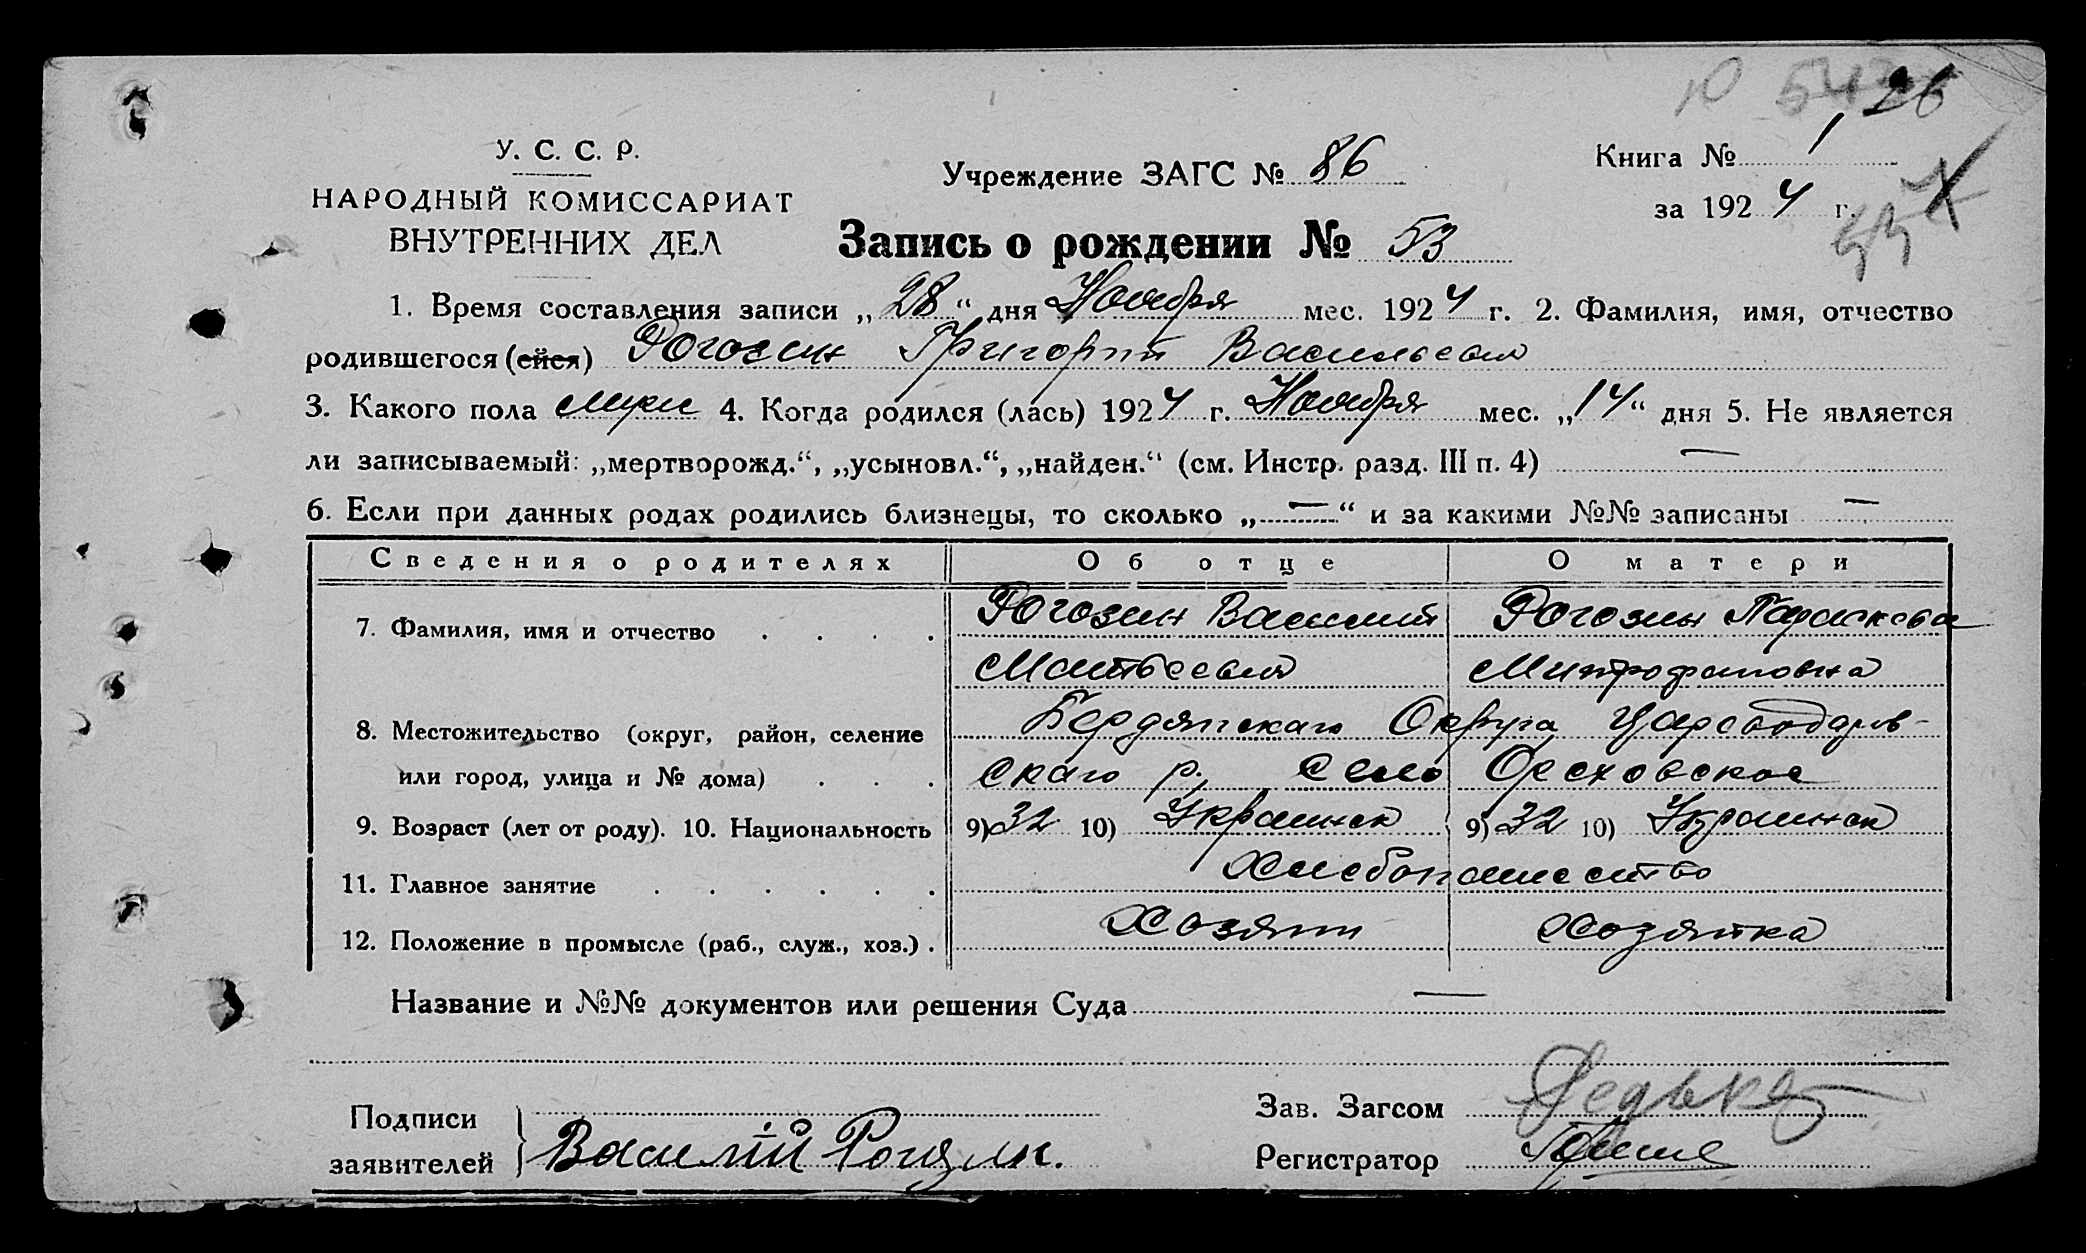 10 543 26
У. С. С. Р.
НАРОДНЫЙ КОМИССАРИАТ
ВНУТРЕННИХ ДЕЛ
Учреждение ЗАГС № 86
Книга № 1
за 1924 г.
Запись о рождении № 53
1. Время составления записи „28“ дня Ноября мес. 1924 г. 2. Фамилия, имя, отчество
родившегося (ейся) Рогозин Григорий Васильевич
3. Какого пола муж 4. Когда родился (лась) 1924 г. Ноября мес. „14“ дня 5. Не является
ли записываемый: „мертворожд.“, „усыновл.“, „найден.“ (см. Инстр. разд. III п. 4) —
6. Если при данных родах родились близнецы, то сколько „—“ и за какими №№ записаны —
Сведения о родителях Об отце О матери
7. Фамилия, имя и отчество . . . . Рогозин Василий Рогозин Параскева
Матвеевич Митрофановна
8. Местожительство (округ, район, селение Бердянскаго Округа Цареводаров-
или город, улица и № дома) . . . скаго р, село Ореховское
9. Возраст (лет от роду). 10. Национальность 9) 32 10) Украинец 9) 32 10) Украинка
11. Главное занятие . . . . . . Хлебопашество
12. Положение в промысле (раб., служ., хоз.) . Хозяин Хозяйка
Название и №№ документов или решения Суда —
Подписи
заявителей } Василий Рогозин.
Зав. Загсом
Регистратор